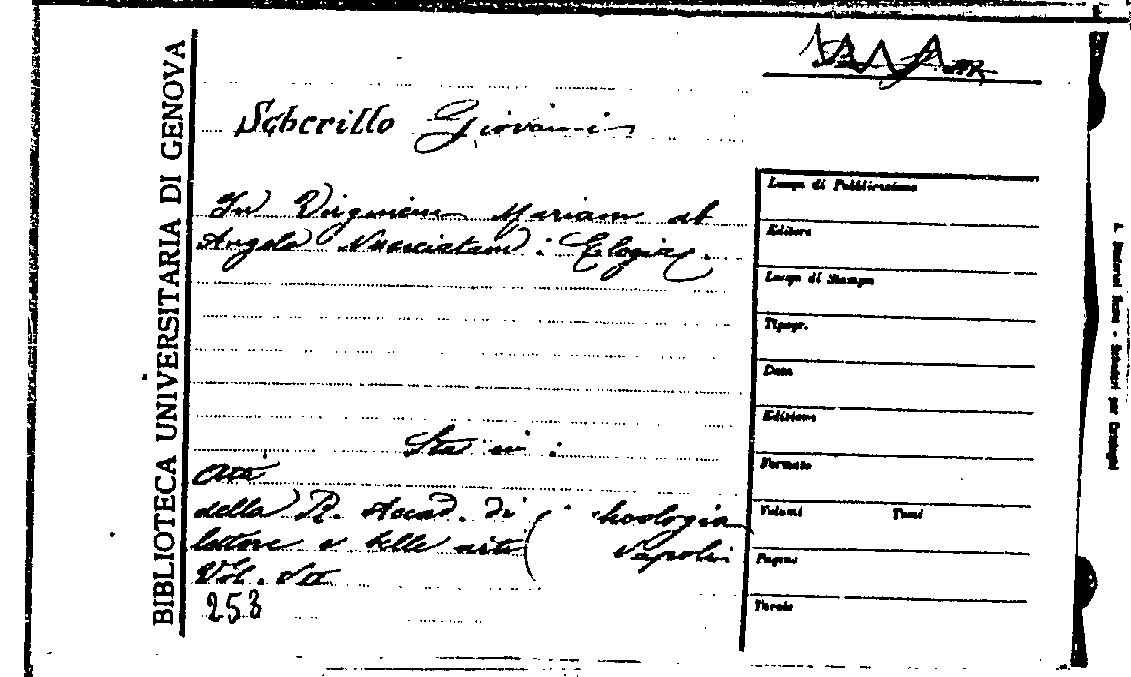 BIBLIOTECA UNIVERSITARIA DI GENOVA
Scherillo Giovanni
In Virginem Mariam ab
Angelo Nunciatam : Elogia.
Sta in :
Atti
della R. Accad. di archeologia
lettere e belle arti Napoli
Vol. VII
258
Luogo di Pubblicazione
Editore
Luogo di Stampa
Tipogr.
Data
Edizione
Formato
Volumi Tomi
Pagine
Tavole
Staderini Roma - Schedari per Cataloghi